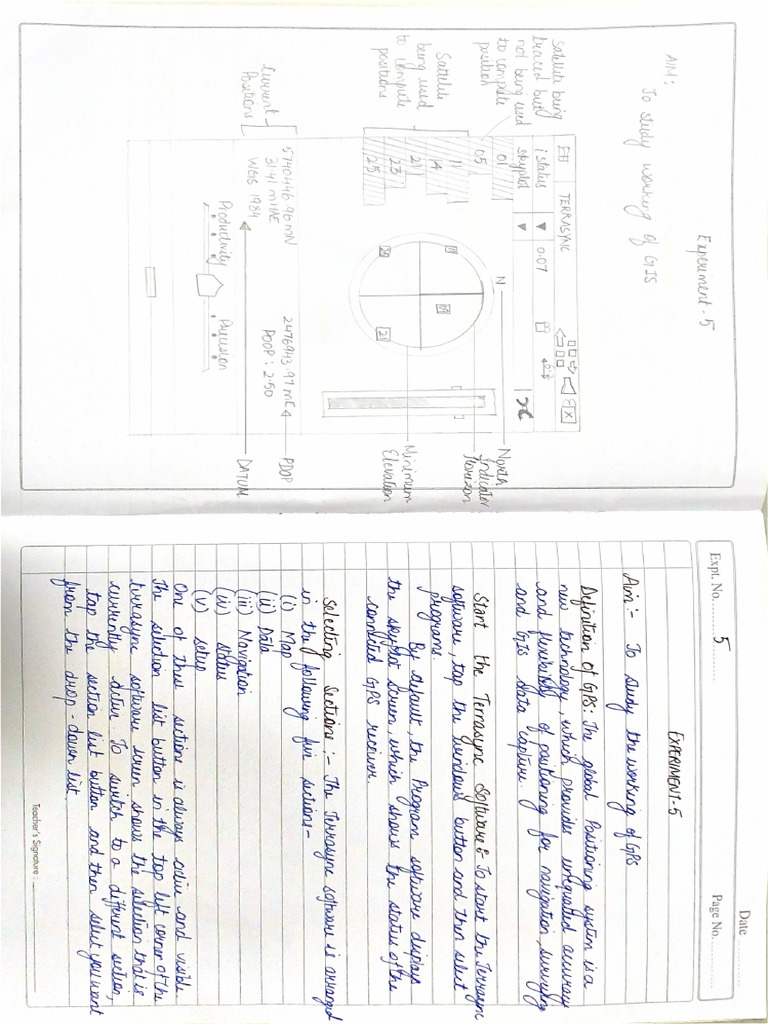 Experiment - 5
AIM:
To study working of GIS
TERRASYNC
X
i status
0.07
skyplot
01
05
11
14
21
23
25
Satellite being
traced but
not being used
to compute
position
Satellite
being used
to compute
positions
Current
Positions
N
North
Indicator
Horizon
Minimum
Elevation
5740446.96mN
2476943.97 mE
PDOP : 2.50
WGS 1984
PDOP
DATUM
Productivity
Precision
Date
Expt. No. 5
Page No.
EXPERIMENT-5
Aim:- To study the working of GPS
Definition of GPS:- The global Positioning system is a
new technology, which provides unequalled accuracy
and flexibility of positioning for navigation, surveying
and GIS data capture.
Start the Terrasync Software:- To start the Terrasync
software, tap the windows button and then select
programs.
By default, the Program software displays
the skyplot screen, which shows the status of the
connected GPS receiver.
Selecting Sections:- The Terrasync software is arranged
in the following five sections:-
(i) Map
(ii) Data
(iii) Navigation
(iv) status
(v) setup
One of these sections is always active and visible.
The selection list button in the top left corner of the
terrasync software screen shows the selection that is
currently active. To switch to a different section,
tap the section list button and then select you want
from the drop-down list.
Teacher's Signature :